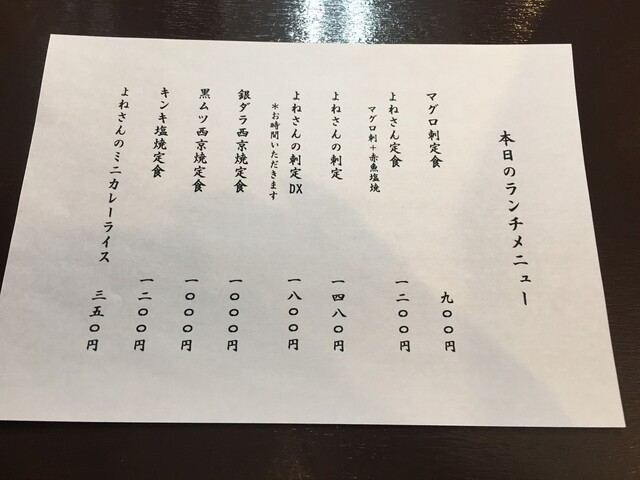 本日のランチメニュー
マグロ刺定食 九〇〇円
よねさん定食 一二〇〇円
マグロ刺+赤魚塩焼
よねさんの刺定 一四八〇円
よねさんの刺定DX 一八〇〇円
*お時間いただきます
銀ダラ西京焼定食 一〇〇〇円
黒ムツ西京焼定食 一〇〇〇円
キンキ塩焼定食 一二〇〇円
よねさんのミニカレーライス 三五〇円